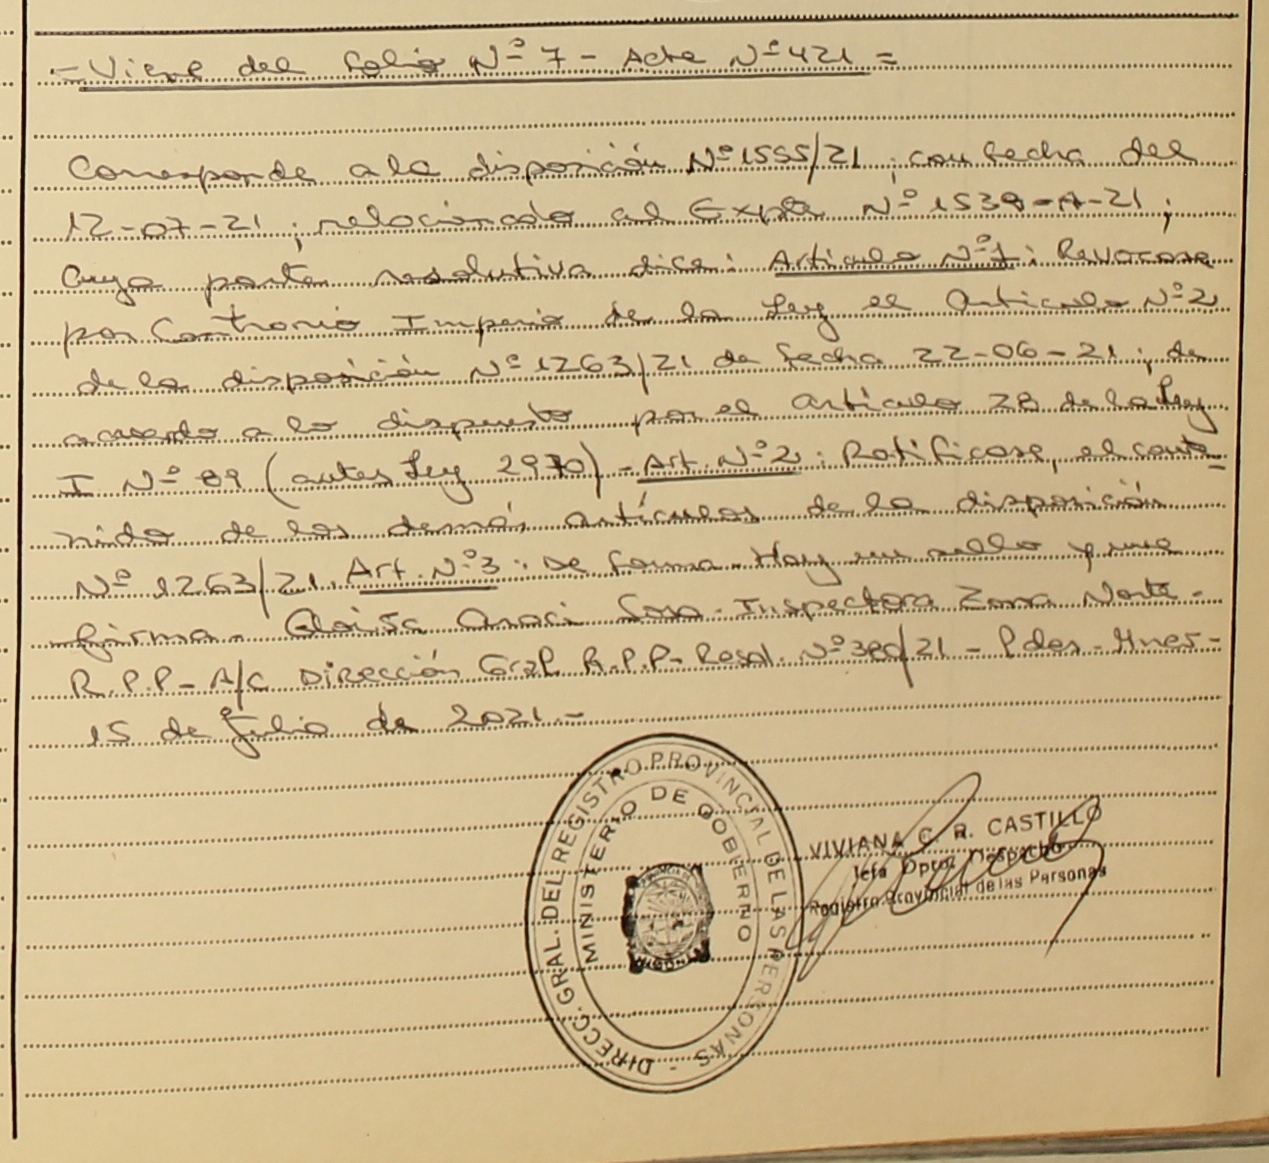 = Viene del folio Nº 7 - Acta Nº 421 =
Corresponde a la disposición Nº 1555/21 ; con fecha del
12-07-21 ; relacionado al Expte Nº 1539-A-21 ;
Cuya parte resolutiva dice : Artículo Nº 1 : Revocase
por Contrario Imperio de la Ley el Artículo Nº 2
de la disposición Nº 1263/21 de fecha 22-06-21 ; de
acuerdo a lo dispuesto por el artículo 28 de la Ley
I Nº 89 (antes Ley 2970) - Art. Nº 2 : Ratificase, el conte-
nido de los demás artículos de la disposición
Nº 1263/21. Art. Nº 3 : De forma. Hay un sello y una
firma. Sosa - Inspectora Zona Norte -
R.P.P - A/C Dirección Gral R.P.P - Resol. Nº 380/21 - Pdas - Mnes -
15 de Julio de 2021. -
DIRECC. GRAL. DEL REGISTRO PROVINCIAL DE LAS PERSONAS -
MINISTERIO DE GOBIERNO
MISIONES
VIVIANA C. R. CASTILLO
Jefa Dpto. Despacho
Registro Provincial de las Personas